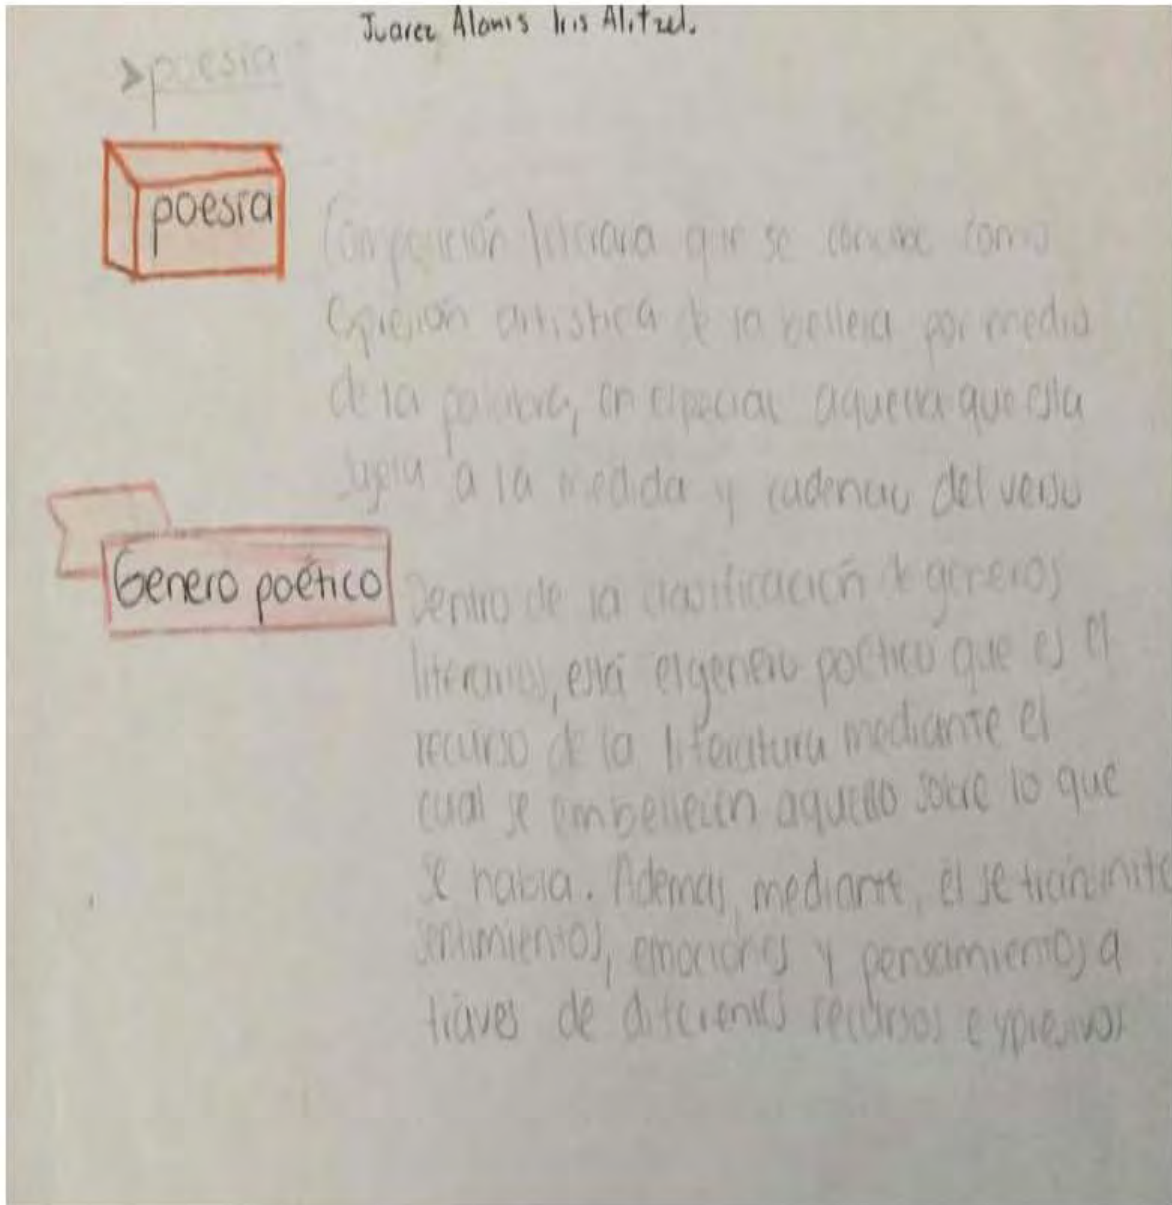 Juarez Alanis Iris Alitzel.
>poesía
poesía
Composición literaria que se concibe como
expresión artística de la belleza por medio
de la palabra, en especial aquella que esta
sujeta a la medida y cadencia del verso
Genero poético
Dentro de la clasificación de generos
literarios, está el genero poético que es el
recurso de la literatura mediante el
cual se embellecen aquello sobre lo que
se habla. Además, mediante, él se transmite
sentimientos, emociones y pensamientos a
tráves de diferentes recursos expresivos